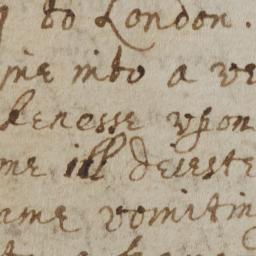 to London.
me into a ve
kenesse vpon
me ill deieste
ame vomitin